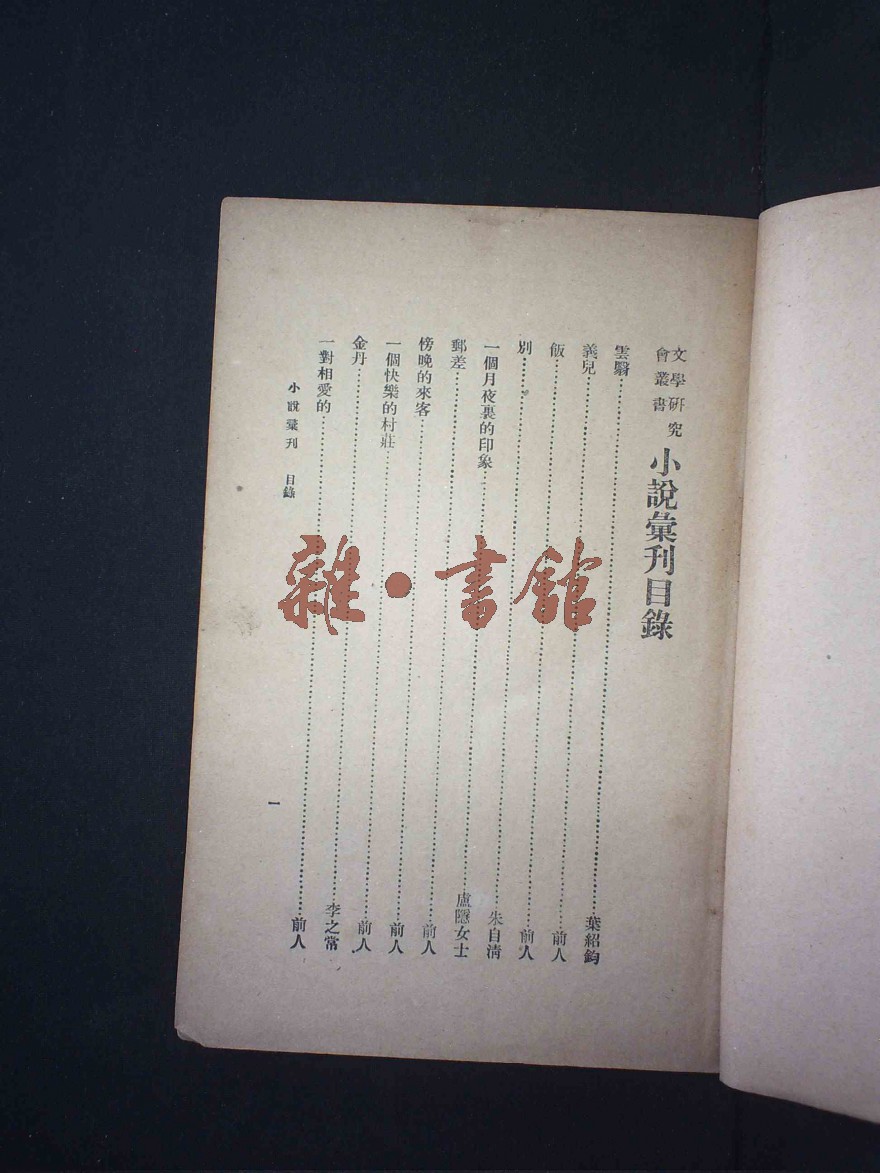 文學研究
會叢書
小說彙刊目錄
雲翳……葉紹鈞
義兒……前人
飯……前人
別……朱自清
一個月夜裏的印象……盧隱女士
郵差……前人
傍晚的來客……前人
一個快樂的村莊……前人
金丹……李之常
一對相愛的……前人
小說彙刊 目錄
一
雜·書館